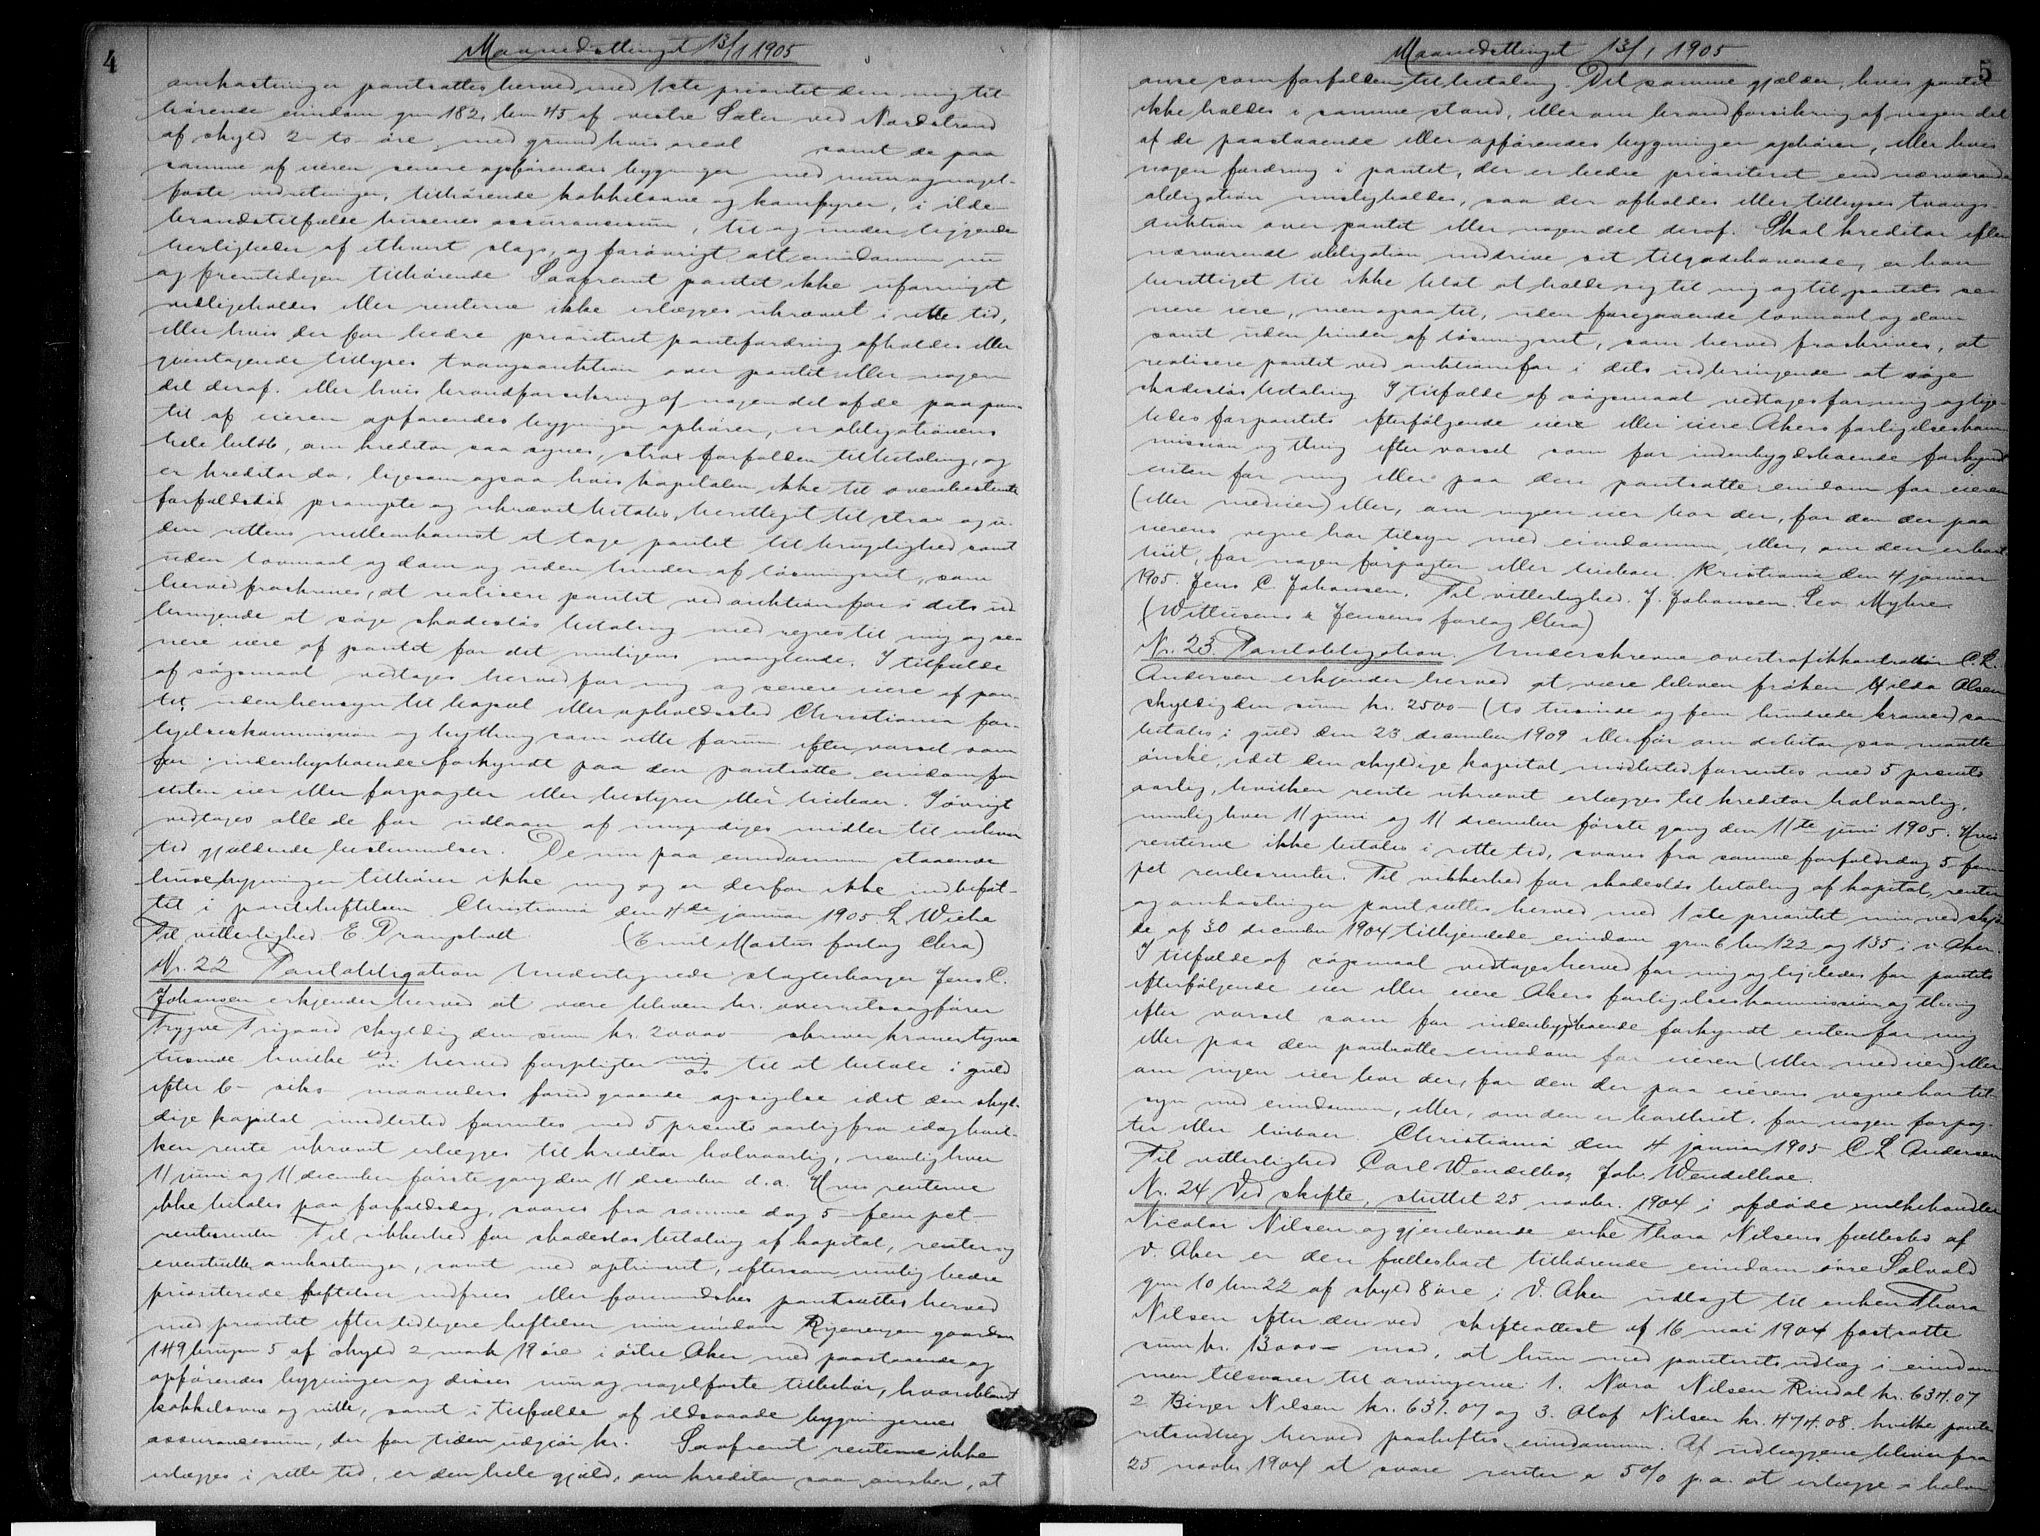 4
Maanedsttinget 13/1 1905
omkostninger pantsættes herved med 1ste prioritet den mig til-
hørende eiendom gnr 182, bnr 45 af vestre Sæter ved Nordstrand
af skyld 2 - to - øre, med grund hvis areal samt de paa
samme af eieren senere opførendes bygninger med mur og nagel-
faste indretninger, tilhørende kakkelovne og komfyrer, i ilde-
brandstilfælde husenes assurancesum, til og underliggende
herligheder af ethvert slags, og forøvrigt alt eiendommen nu
og fremtidigen tilhørende. Saafremt pantet ikke uforringet
vedligeholdes eller renterne ikke erlægges ukrævet i rette tid,
eller hvis der for bedre prioriteret pantefordring afholdes eller
gjentagende tillyses tvangsauktion over pantet eller nogen
del deraf. eller hvis brandforsikring af nogen del af de paa pan-
tet af eieren opførendes bygninger ophører, er obligationens
hele beløb, om kreditor saa synes, strax forfalden til betaling, og
er kreditor da, ligesom ogsaa hvis kapitalen ikke til ovenbestemte
forfaldstid prompte og ukrævet betales, berettiget til strax og u-
den rettens mellemkomst at tage pantet til brugelighed samt
uden lovmaal og dom og uden hinder af løsningsret, som
herved fraskrives, at realisere pantet ved auktion for i dets ud-
bringende at søge skadesløs betaling med regres til mig og se-
nere eiere af pantet for det muligens manglende. I tilfælde
af søgsmaal vedtages herved for mig og senere eiere af pan-
tet, uden hensyn til bopæl eller opholdssted Christiania for-
ligelseskommission og byting som rette forum efter varsel som
for indenbysboende forkyndt paa den pantsatte eiendom for
enten eier eller forpagter eller bestyrer eller beboer. Iøvrigt
vedtages alle de for udlaan af umyndiges midler til enhver
tid gjældende bestemmelser. De nu paa eiendommen staaende
husebygninger tilhører ikke mig og er derfor ikke indbefat-
tet i panteheftelsen. Christiania den 4de januar 1905 L. Wiehe
Til vitterlighed E Drangsholt (Emil Mostus forlag Chra)
Nr. 22 Pantobligation Undertegnede slagterborger Jens C.
Johansen erkjender herved at være bleven hr. overretssagfører
Trygve Trigaard skyldig den sum kr. 20000 - skriver kroner tyve
tusinde hvilke vi herved forpligter mig os til at betale i guld
efter 6 - seks maaneders forudgaaende opsigelse idet den skyl-
dige kapital imidlertid forrentes med 5 procents aarlig fra idag hvil-
ken rente ukrævet erlægges til kreditor halvaarlig, nemlig hver
11 juni og 11 december første gang den 11 december d.a. Hvis renterne
ikke betales paa forfaldsdag, svares fra samme dag 5 - fem pct -
rentesrenter. Til sikkerhed for skadesløs betaling af kapital, renter og
eventuelle omkostninger, samt med optrinsret, eftersom mulig bedre
prioriterede heftelser indfries eller formindskes pantsættes herved
med prioritet efter tidligere heftelser min eiendom Ryenengen gaardsnr
149 brugsnr 5 af skyld 2 mark 19 øre i østre Aker med paastaaende og
opførendes bygninger og disses mur og nagelfaste tilbehør, hvoriblandt
kakkelovne og rette, samt i tilfælde af ildsvaade bygningernes
assurancesum, der for tiden udgjør kr. Saafremt renterne ikke
erlægges i rette tid, er den hele gjæld, om kreditor saa ønsker, at
5
Maanedsttinget 13/1 1905
anse som forfalden til betaling. Det samme gjælder, hvis pantet
ikke holdes i samme stand, eller om brandforsikring af nogen del
af de paastaaende eller opførendes bygninger ophører, eller hvis
nogen fordring i pantet, der er bedre prioriteret end nærværende
obligation misligholdes, saa der afholdes eller tillyses tvangs-
auktion over pantet eller nogen del deraf. Skal kreditor efter
nærværende obligation inddrive sit tilgodehavende, er han
berettiget til ikke blot at holde sig til mig og til pantets se-
nere eiere, men ogsaa til, uden foregaaende lovmaal og dom
samt uden hinder af løsningsret, som herved fraskrives, at
realisere pantet ved auktion for i dets udbringende at søge
skadesløs betaling. I tilfælde af søgsmaal vedtages for mig og lige-
ledes for pantets efterfølgende eier eller eiere Akers forligelseskom-
mission og thing efter varsel som for indenbygdsboende forkyndt
enten for mig eller paa den pantsatte eiendom for eieren
(eller medeier) eller, om ingen eier bor der, for den der paa
eierens vegne har tilsyn med eiendommen, eller, om den er bort-
leiet, for nogen forpagter eller beboer. Kristiania den 4 januar
1905. Jens C. Johansen. Til vitterlighed. J. Johansen. Lev. Myhre
(Wittusens & Jensens forlag Chra)
Nr. 23 Pantobligation. Underskrevne overtrafikkontrollør C. L.
Andersen erkjender herved at være bleven frøken Hilda Olsen
skyldig den sum kr. 2500 - (to tusinde og fem hundrede kroner) som
betales i guld den 23 december 1909 eller før om debitor saa maatte
ønske, idet den skyldige kapital imidlertid forrentes med 5 procents
aarlig, hvilken rente ukrævet erlægges til kreditor halvaarlig,
nemlig hver 11 juni og 11 december første gang den 11te juni 1905. Hvis
renterne ikke betales i rette tid, svares fra samme forfaldsdag 5 fem
pct rentesrenter. Til sikkerhed for skadesløs betaling af kapital, renter
og omkostninger pantsættes herved med 1ste prioritet min ved skjø-
de af 30 december 1904 tilhjemlede eiendom gnr 6 bnr 122 og 135 i v. Aker.
I tilfælde af søgsmaal vedtages herved for mig og ligeledes for pantets
efterfølgende eier eller eiere Akers forligelseskommission og thing
efter varsel som for indenbygdsboende forkyndt enten for mig
eller paa den pantsatte eiendom for eieren (eller medeier) eller
om ingen eier bor der, for den der paa eierens vegne har til-
syn med eiendommen, eller, om den er bortleiet, for nogen forpag-
ter eller beboer. Christiania den 4 januar 1905 C. L. Andersen
Til vitterlighed Carl Wendelboe, Joh. Wendelboe.
Nr. 24 Ved skifte, sluttet 25 novbr. 1904 i afdøde melkehandler
Nicolai Nilsen og gjenlevende enke Thora Nilsens fællesbo af
V. Aker er den fællesboet tilhørende eiendom øvre Solvold
gnr 10 bnr 22 af skyld 8 øre i V. Aker udlagt til enken Thora
Nilsen efter den ved skifteattest af 16 mai 1904 fastsatte
sum kr. 13000 - mod, at hun med panteretsudlæg i eiendom-
men tilsvarer til arvingerne: 1. Nora Nilsen Rindal kr. 637.07
2. Birger Nilsen kr. 637.07 og 3. Olaf Nilsen kr. 474.08. hvilke pante-
retsudlæg herved paaheftes eiendommen. Af udlæggene bliver fra
25 novbr. 1904 at svare renter a 5 % p. a. at erlægge i halv-